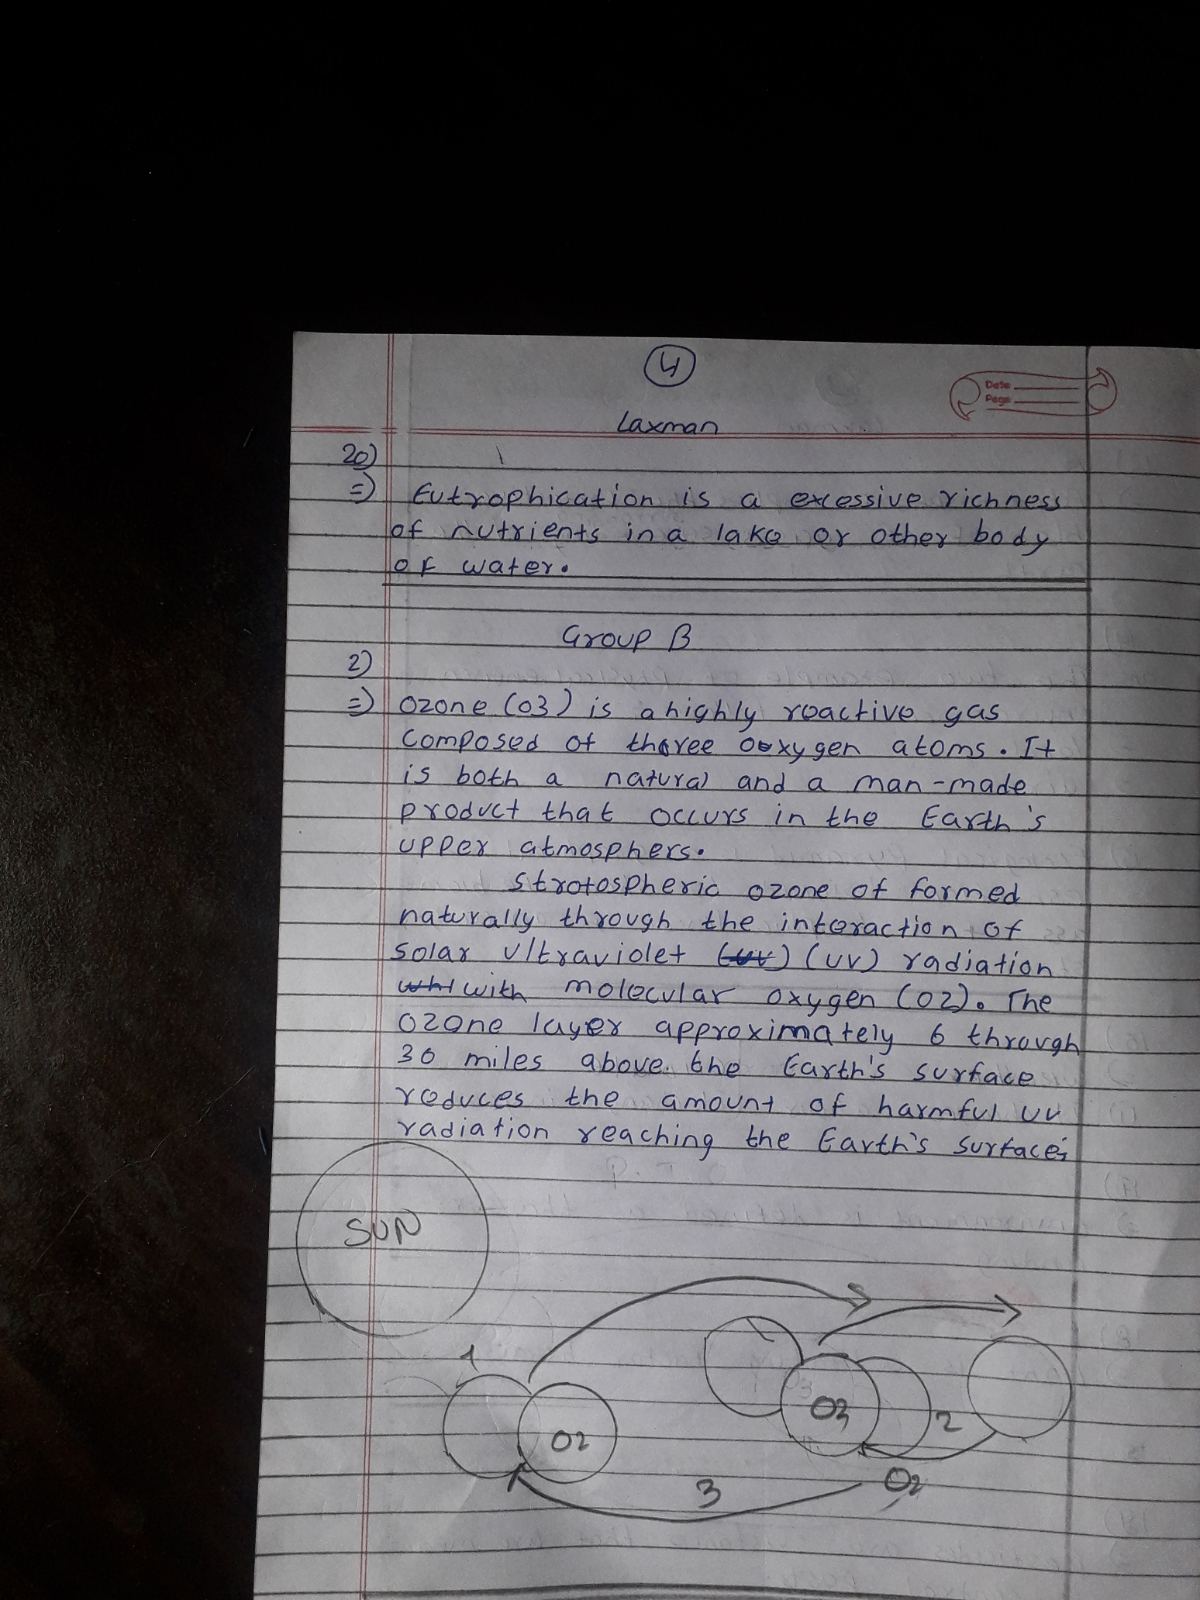 4
Date
Page
Laxman
20)
=) Eutrophication is a excessive richness
of nutrients in a lake or other body
of water.
Group B
2)
=) Ozone (O3) is a highly reactive gas
composed of three ooxygen atoms. It
is both a natural and a man-made
product that occurs in the Earth's
upper atmosphers.
Strotospheric ozone of formed
naturally through the interaction of
solar ultraviolet (uv) (UV) radiation
whi with molecular oxygen (O2). The
Ozone layer approximately 6 through
30 miles above. the Earth's surface
reduces the amount of harmful uv
radiation reaching the Earth's surface;
SUN
1
O2
O3
2
3
O2